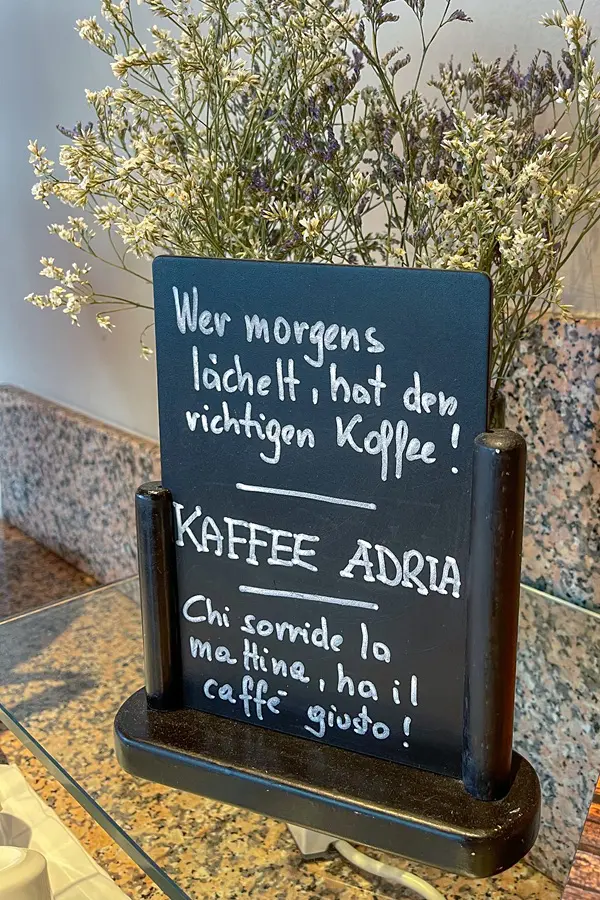 Wer morgens
lächelt, hat den
richtigen Koffee!
KAFFEE ADRIA
Chi sorride la
mattina, ha il
caffé giusto!